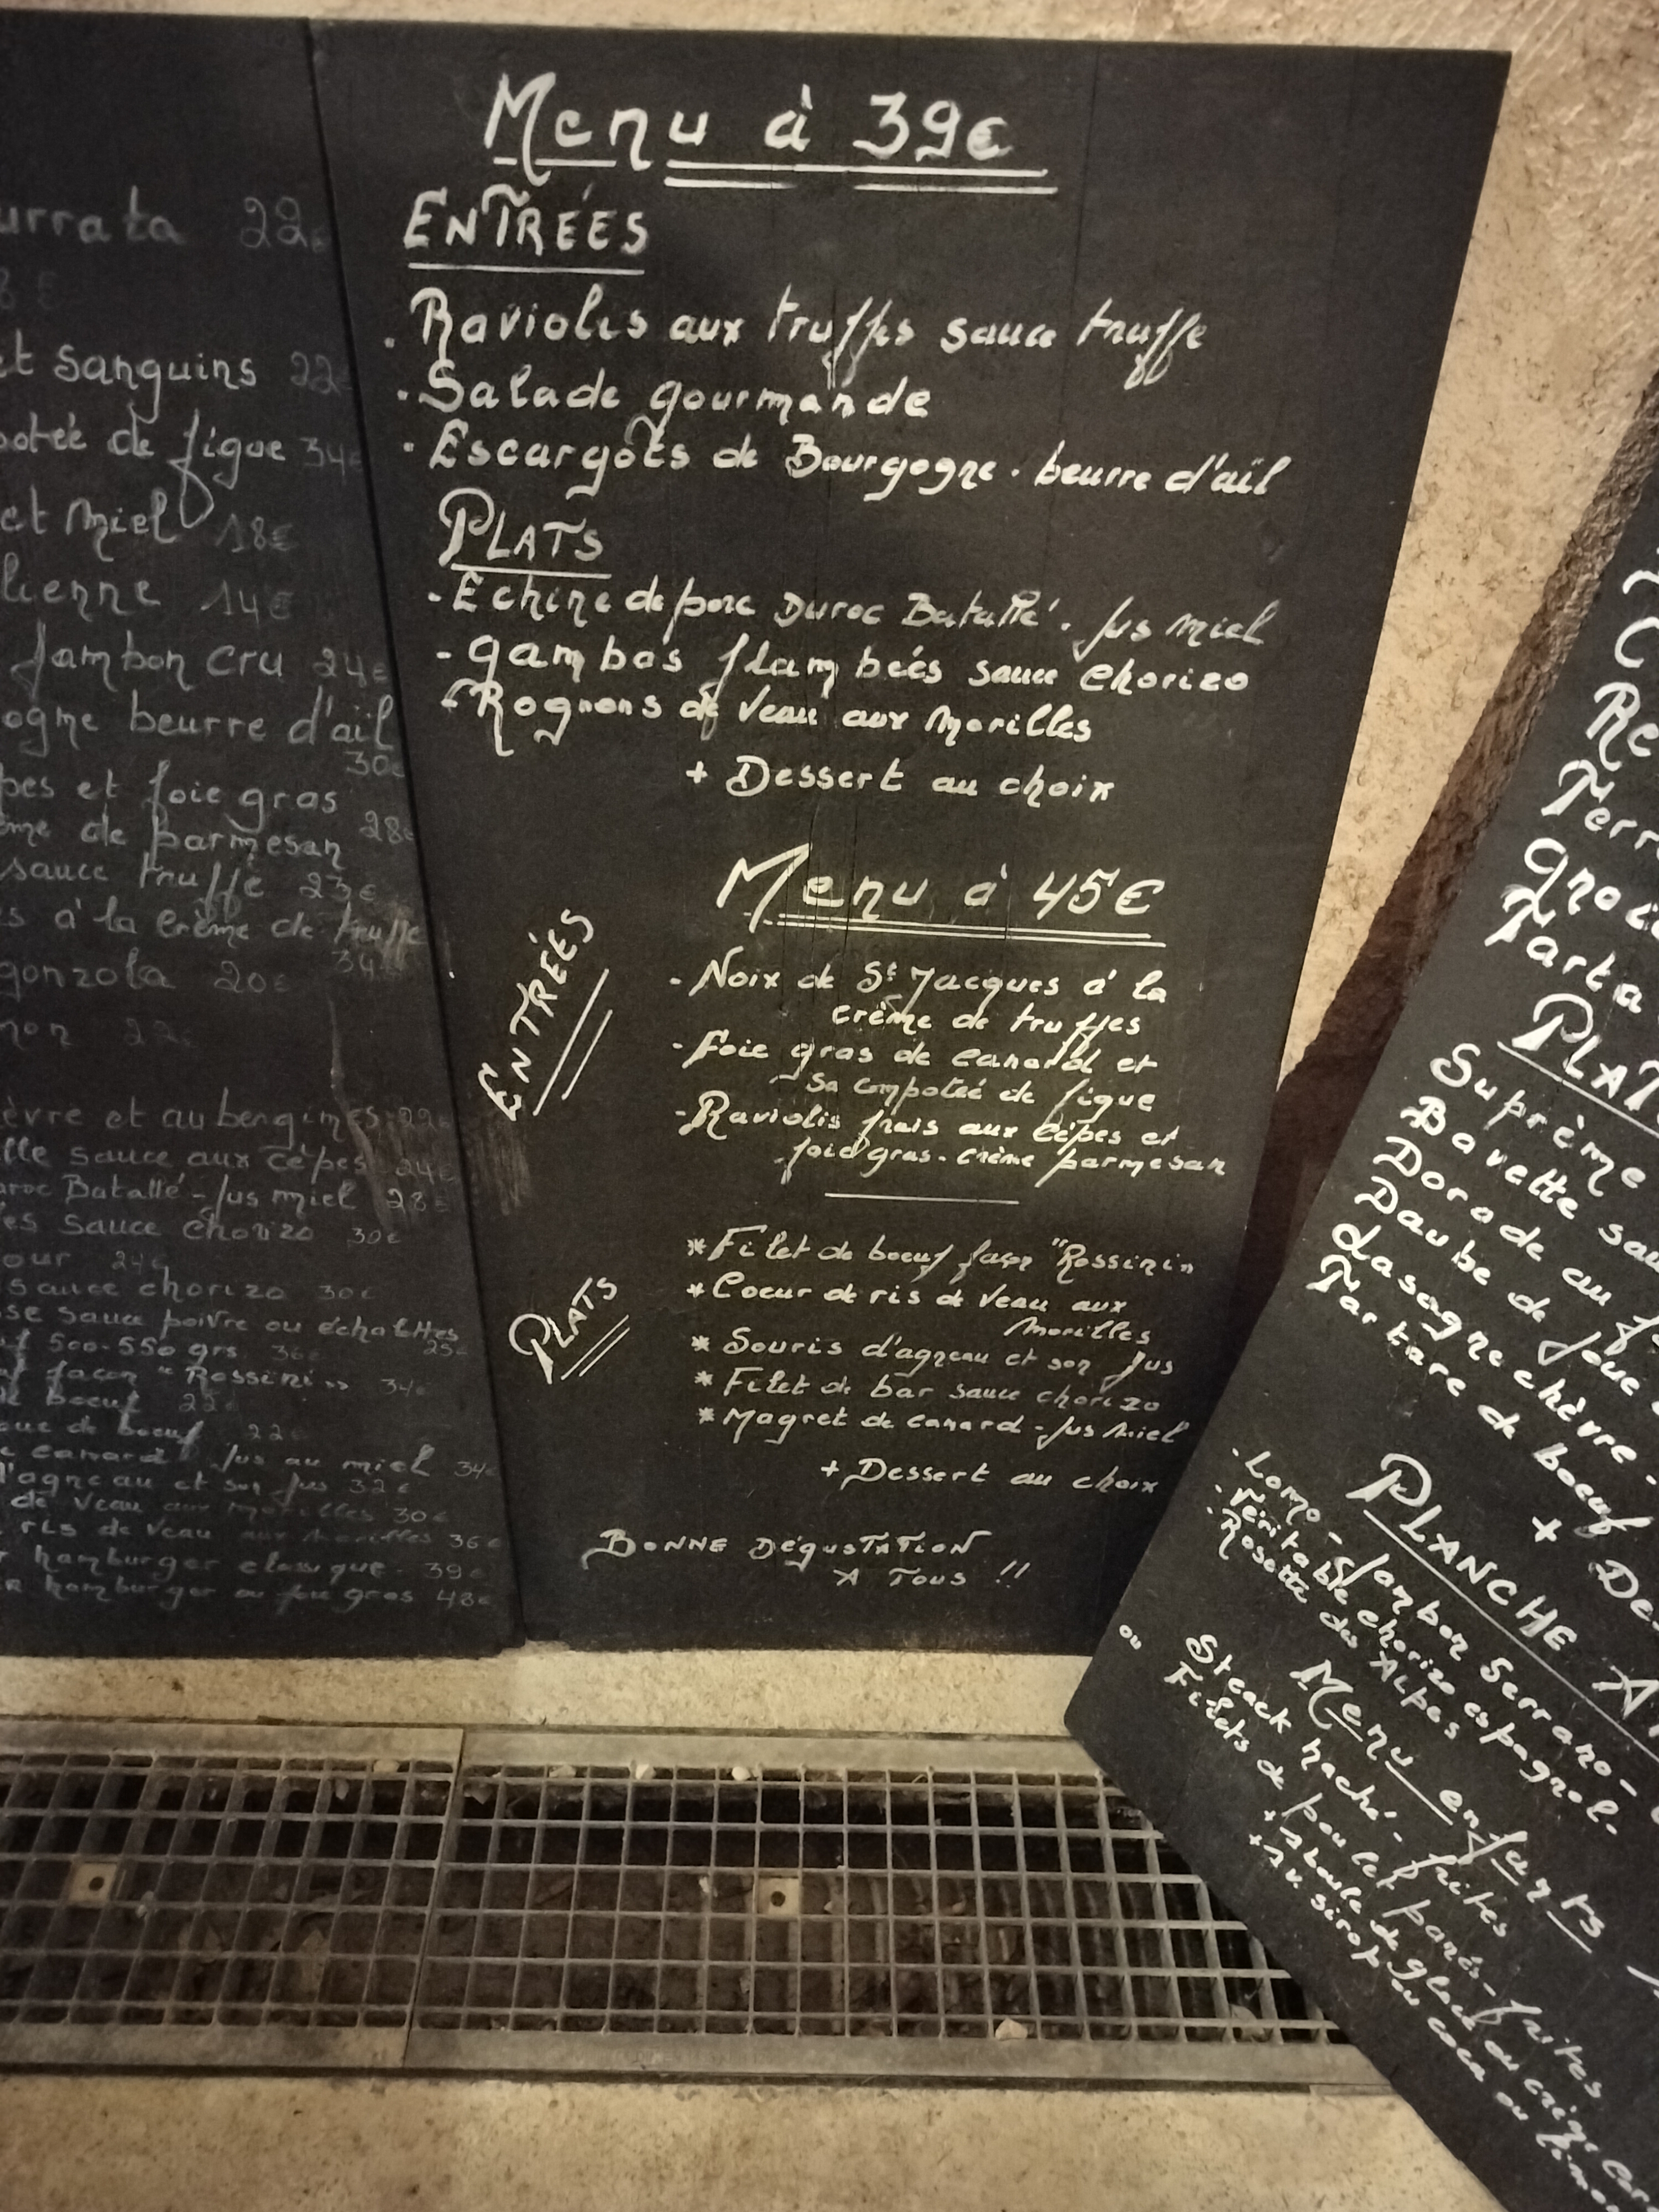 urrata 22€
8€
et sanguins 22€
potée de figue 34€
et miel 18€
lienne 14€
Jambon cru 24€
ogne beurre d'aïl
30€
pes et foie gras
ème de parmesan 28€
sauce truffe 23€
s à la crème de truffe
34€
gonzola 20€
non 22€
èvre et aubengines 22€
lle sauce aux cèpes 24€
uroc Batallé - Jus miel 28€
es sauce chorizo 30€
our 24€
sauce chorizo 30€
sse sauce poivre ou échalottes
25€
500-550 grs 36€
f façon "Rossini" 34€
de boeuf 22€
que de boeuf 22€
e canard Jus au miel 34€
d'agneau et son jus 32€
de veau aux morilles 30€
ris de veau aux morilles 36€
r hamburger classique - 39€
hamburger au foie gras 48€
Menu à 39€
ENTRÉES
. Raviolis aux truffes sauce truffe
. Salade gourmande
. Escargots de Bourgogne . beurre d'aïl
PLATS
- Echine de porc Duroc Batallé . Jus miel
- gambas flambeés sauce chorizo
- Rognons de veau aux morilles
+ Dessert au choix
Menu à 45€
ENTRÉES
- Noix de St Jacques à la
crème de truffes
- Foie gras de canard et
sa compoteé de figue
- Raviolis frais aux cèpes et
foie gras - crème parmesan
PLATS
* Filet de boeuf façon "Rossini"
* Coeur de ris de veau aux
morilles
* Souris d'agneau et son Jus
* Filet de bar sauce chorizo
* Magret de canard - Jus miel
+ Dessert au choix
BONNE DÉGUSTATION
A TOUS !!
C
Re
Terr
gnoc
Tarta
PLAT
Suprème
Bavette sau
Dorade au f
Daube de joue
Lasagne chèvre -
Tartare de boeuf
+ De
PLANCHE A
- Lomo - Jambon Serrano -
- Véritable chorizo espagnol -
- Rosette des Alpes
Menu enfants
Steack haché - frites
ou Filets de poulet panés - frites
+ 1 boule de glace ou crèpe
+ 1 v. sirop ou coca ou